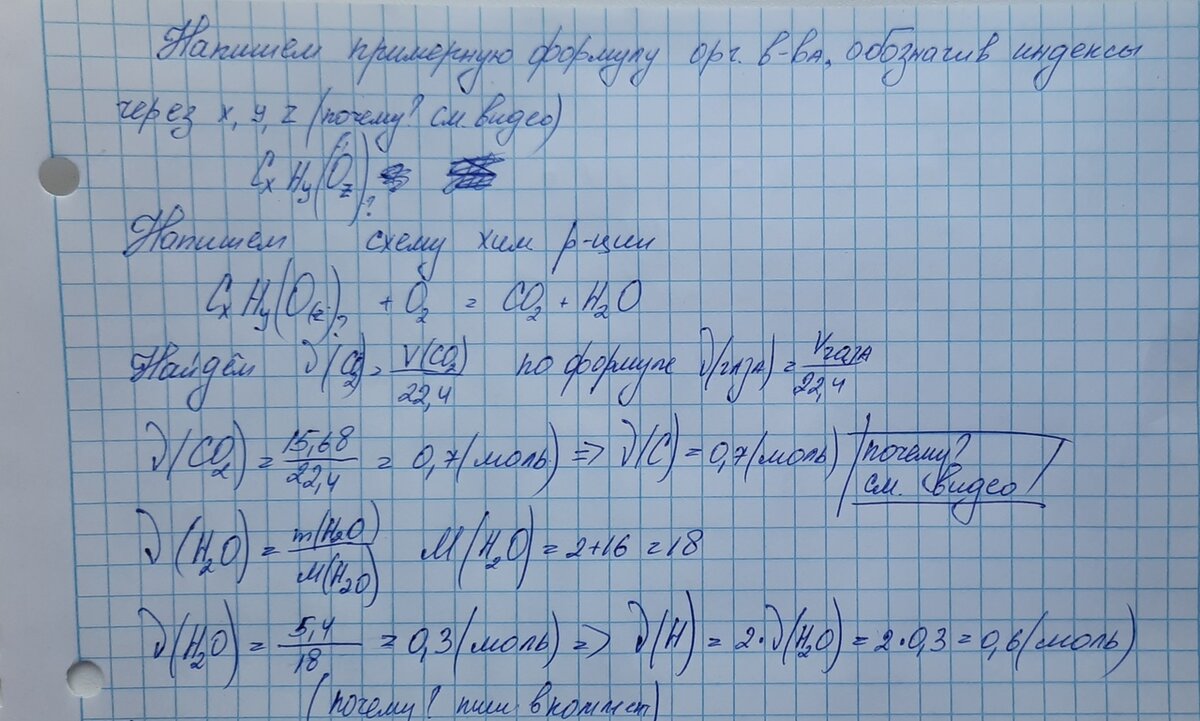 Напишем примерную формулу орг. в-вА, обозначив индексы
через x, y, z (почему? см. видео)
CxHy(Oz)?
Напишем схему хим р-ции
CxHy(O(z))? + O2 = CO2 + H2O
Найдём ν(CO2) = V(CO2)/22,4 по формуле ν(гАзА) = Vгазл/22,4
ν(CO2) = 15,68/22,4 = 0,7(моль) => ν(C) = 0,7(моль) почему?
см. видео
ν(H2O) = m(H2O)/M(H2O) M(H2O) = 2+16 = 18
ν(H2O) = 5,4/18 = 0,3(моль) => ν(H) = 2·ν(H2O) = 2·0,3 = 0,6(моль)
(почему? пиши в коммент)